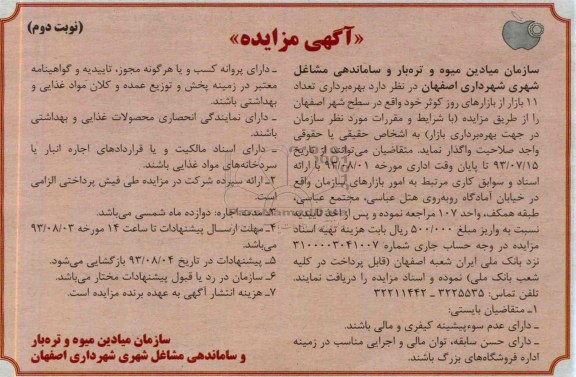 «آگهی مزایده»
(نوبت دوم)
سازمان میادین میوه و تره‌بار و ساماندهی مشاغل
شهری شهرداری اصفهان در نظر دارد بهره‌برداری تعداد
۱۱ بازار از بازارهای روز کوثر خود واقع در سطح شهر اصفهان
را از طریق مزایده (با شرایط و مقررات مورد نظر سازمان
در جهت بهره‌برداری بازار) به اشخاص حقیقی یا حقوقی
واجد صلاحیت واگذار نماید. متقاضیان می‌توانند از تاریخ
۹۳/۰۷/۱۵ تا پایان وقت اداری مورخه ۹۳/۰۸/۰۱ با ارائه
اسناد و سوابق کاری مرتبط به امور بازارهای سازمان واقع
در خیابان آمادگاه روبه‌روی هتل عباسی، مجتمع عباسی،
طبقه همکف، واحد ۱۰۷ مراجعه نموده و پس از اخذ تاییدیه
نسبت به واریز مبلغ ۵۰۰/۰۰۰ ریال بابت هزینه تهیه اسناد
مزایده در وجه حساب جاری شماره ۳۱۰۰۰۰۳۰۴۱۰۰۷
نزد بانک ملی ایران شعبه اصفهان (قابل پرداخت در کلیه
شعب بانک ملی) نموده و اسناد مزایده را دریافت نمایند.
تلفن تماس: ۳۲۲۵۵۳۵ ـ ۳۲۲۱۱۴۴۲
۱ـ متقاضیان بایستی:
ـ دارای عدم سوءپیشینه کیفری و مالی باشند.
ـ دارای حسن سابقه، توان مالی و اجرایی مناسب در زمینه
اداره فروشگاه‌های بزرگ باشند.
ـ دارای پروانه کسب و یا هرگونه مجوز، تاییدیه و گواهینامه
معتبر در زمینه پخش و توزیع عمده و کلان مواد غذایی و
بهداشتی باشند.
ـ دارای نمایندگی انحصاری محصولات غذایی و بهداشتی
باشند.
ـ دارای اسناد مالکیت و یا قراردادهای اجاره انبار یا
سردخانه‌های مواد غذایی باشند.
۲ـ ارائه سپرده شرکت در مزایده طی فیش پرداختی الزامی
است.
۳ـ مدت اجاره: دوازده ماه شمسی می‌باشد.
۴ـ مهلت ارسال پیشنهادات تا ساعت ۱۴ مورخه ۹۳/۰۸/۰۳
می‌باشد.
۵ـ پیشنهادات در تاریخ ۹۳/۰۸/۰۴ بازگشایی می‌شود.
۶ـ سازمان در رد یا قبول پیشنهادات مختار می‌باشد.
۷ـ هزینه انتشار آگهی به عهده برنده مزایده است.
سازمان میادین میوه و تره‌بار
و ساماندهی مشاغل شهری شهرداری اصفهان